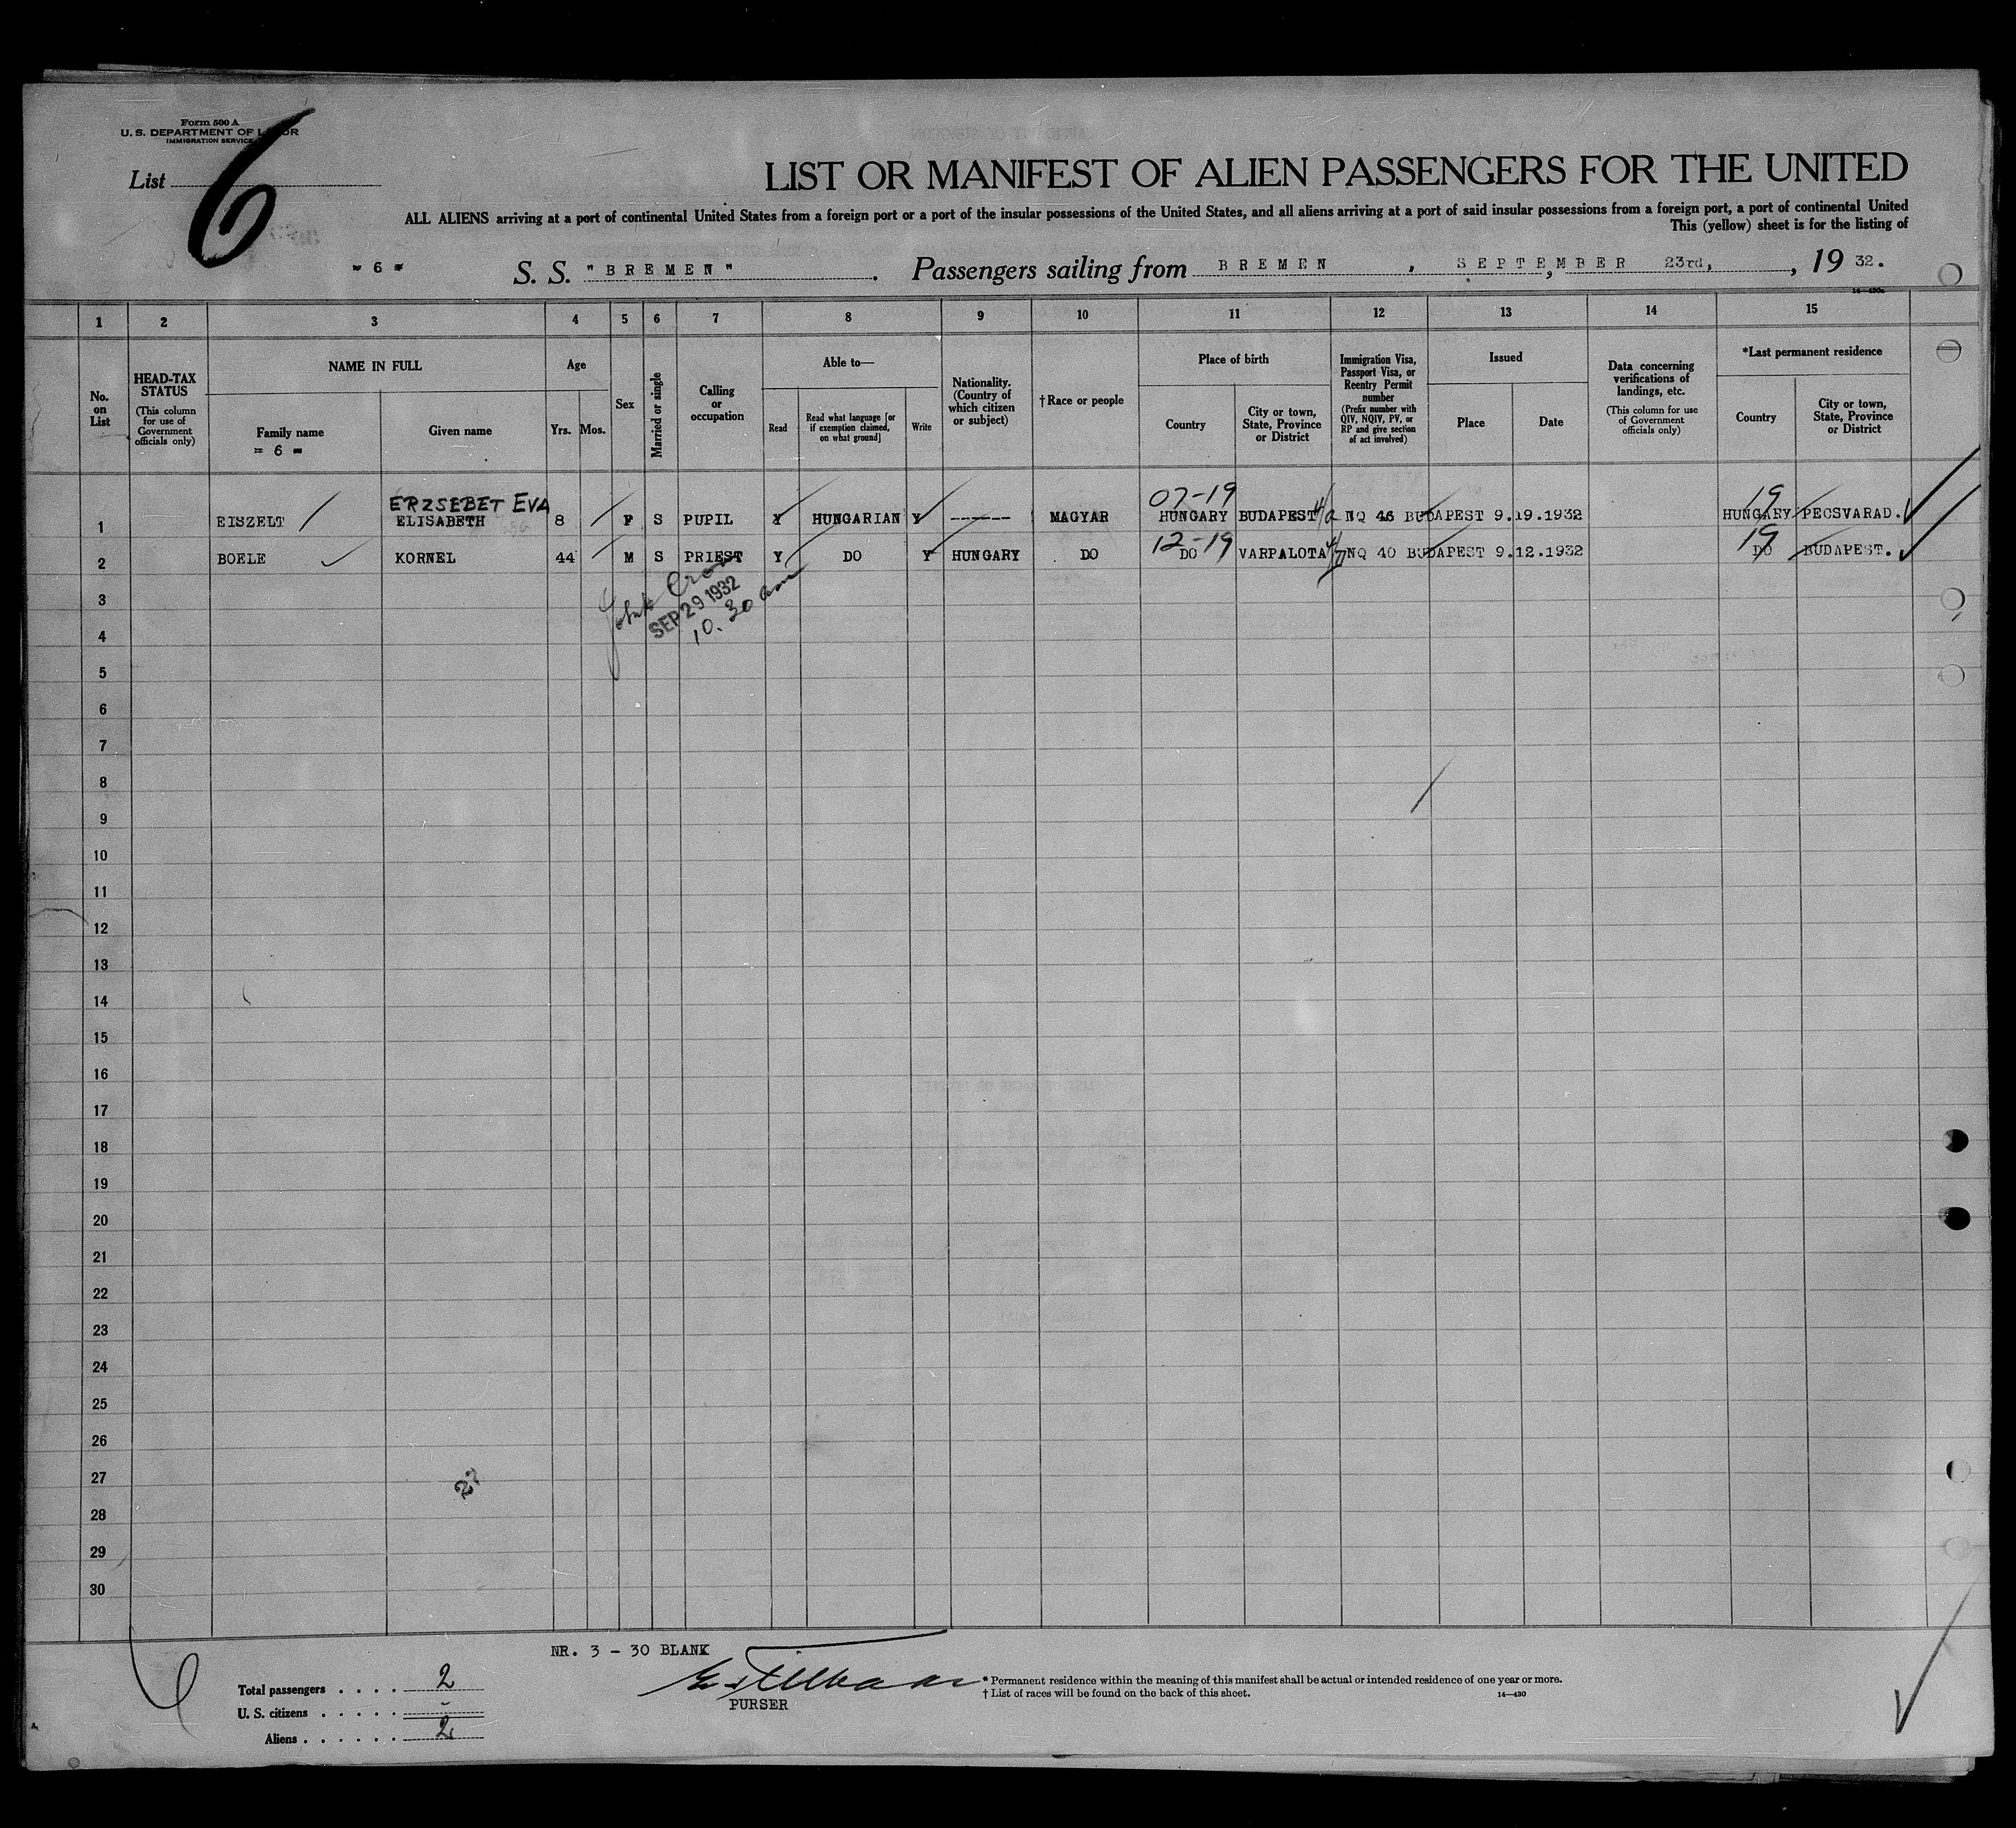 Form 500 A
U. S. DEPARTMENT OF LABOR
IMMIGRATION SERVICE
List 6
LIST OR MANIFEST OF ALIEN PASSENGERS FOR THE UNITED
ALL ALIENS arriving at a port of continental United States from a foreign port or a port of the insular possessions of the United States, and all aliens arriving at a port of said insular possessions from a foreign port, a port of continental United
This (yellow) sheet is for the listing of
= 6 = S. S. "BREMEN". Passengers sailing from BREMEN, SEPTEMBER 23rd, 1932.
14—430a
1 2 3 4 5 6 7 8 9 10 11 12 13 14 15
No. on List
HEAD-TAX STATUS
(This column for use of Government officials only)
NAME IN FULL
Family name
= 6 =
Given name
Age
Yrs. Mos.
Sex
Married or single
Calling or occupation
Able to—
Read
Read what language [or if exemption claimed, on what ground]
Write
Nationality. (Country of which citizen or subject)
† Race or people
Place of birth
Country
City or town, State, Province or District
Immigration Visa, Passport Visa, or Reentry Permit number
(Prefix number with QIV, NQIV, PV, or RP and give section of act involved)
Issued
Place
Date
Data concerning verifications of landings, etc.
(This column for use of Government officials only)
*Last permanent residence
Country
City or town, State, Province or District
ERZSEBET EVA 07-19 19
1 EISZELT ELISABETH 8 F S PUPIL Y HUNGARIAN Y ------ MAGYAR HUNGARY BUDAPEST NQ 46 BUDAPEST 9.19.1932 HUNGARY PECSVARAD.
12-19 19
2 BOELE KORNEL 44 M S PRIEST Y DO Y HUNGARY DO DO VARPALOTA NQ 40 BUDAPEST 9.12.1932 DO BUDAPEST.
SEP 29 1932
10.30 am
3
4
5
6
7
8
9
10
11
12
13
14
15
16
17
18
19
20
21
22
23
24
25
26
27
27
28
29
30
NR. 3 - 30 BLANK
Total passengers . . . . 2
U. S. citizens . . . . . -
Aliens . . . . . . 2
PURSER
* Permanent residence within the meaning of this manifest shall be actual or intended residence of one year or more.
† List of races will be found on the back of this sheet.
14—430